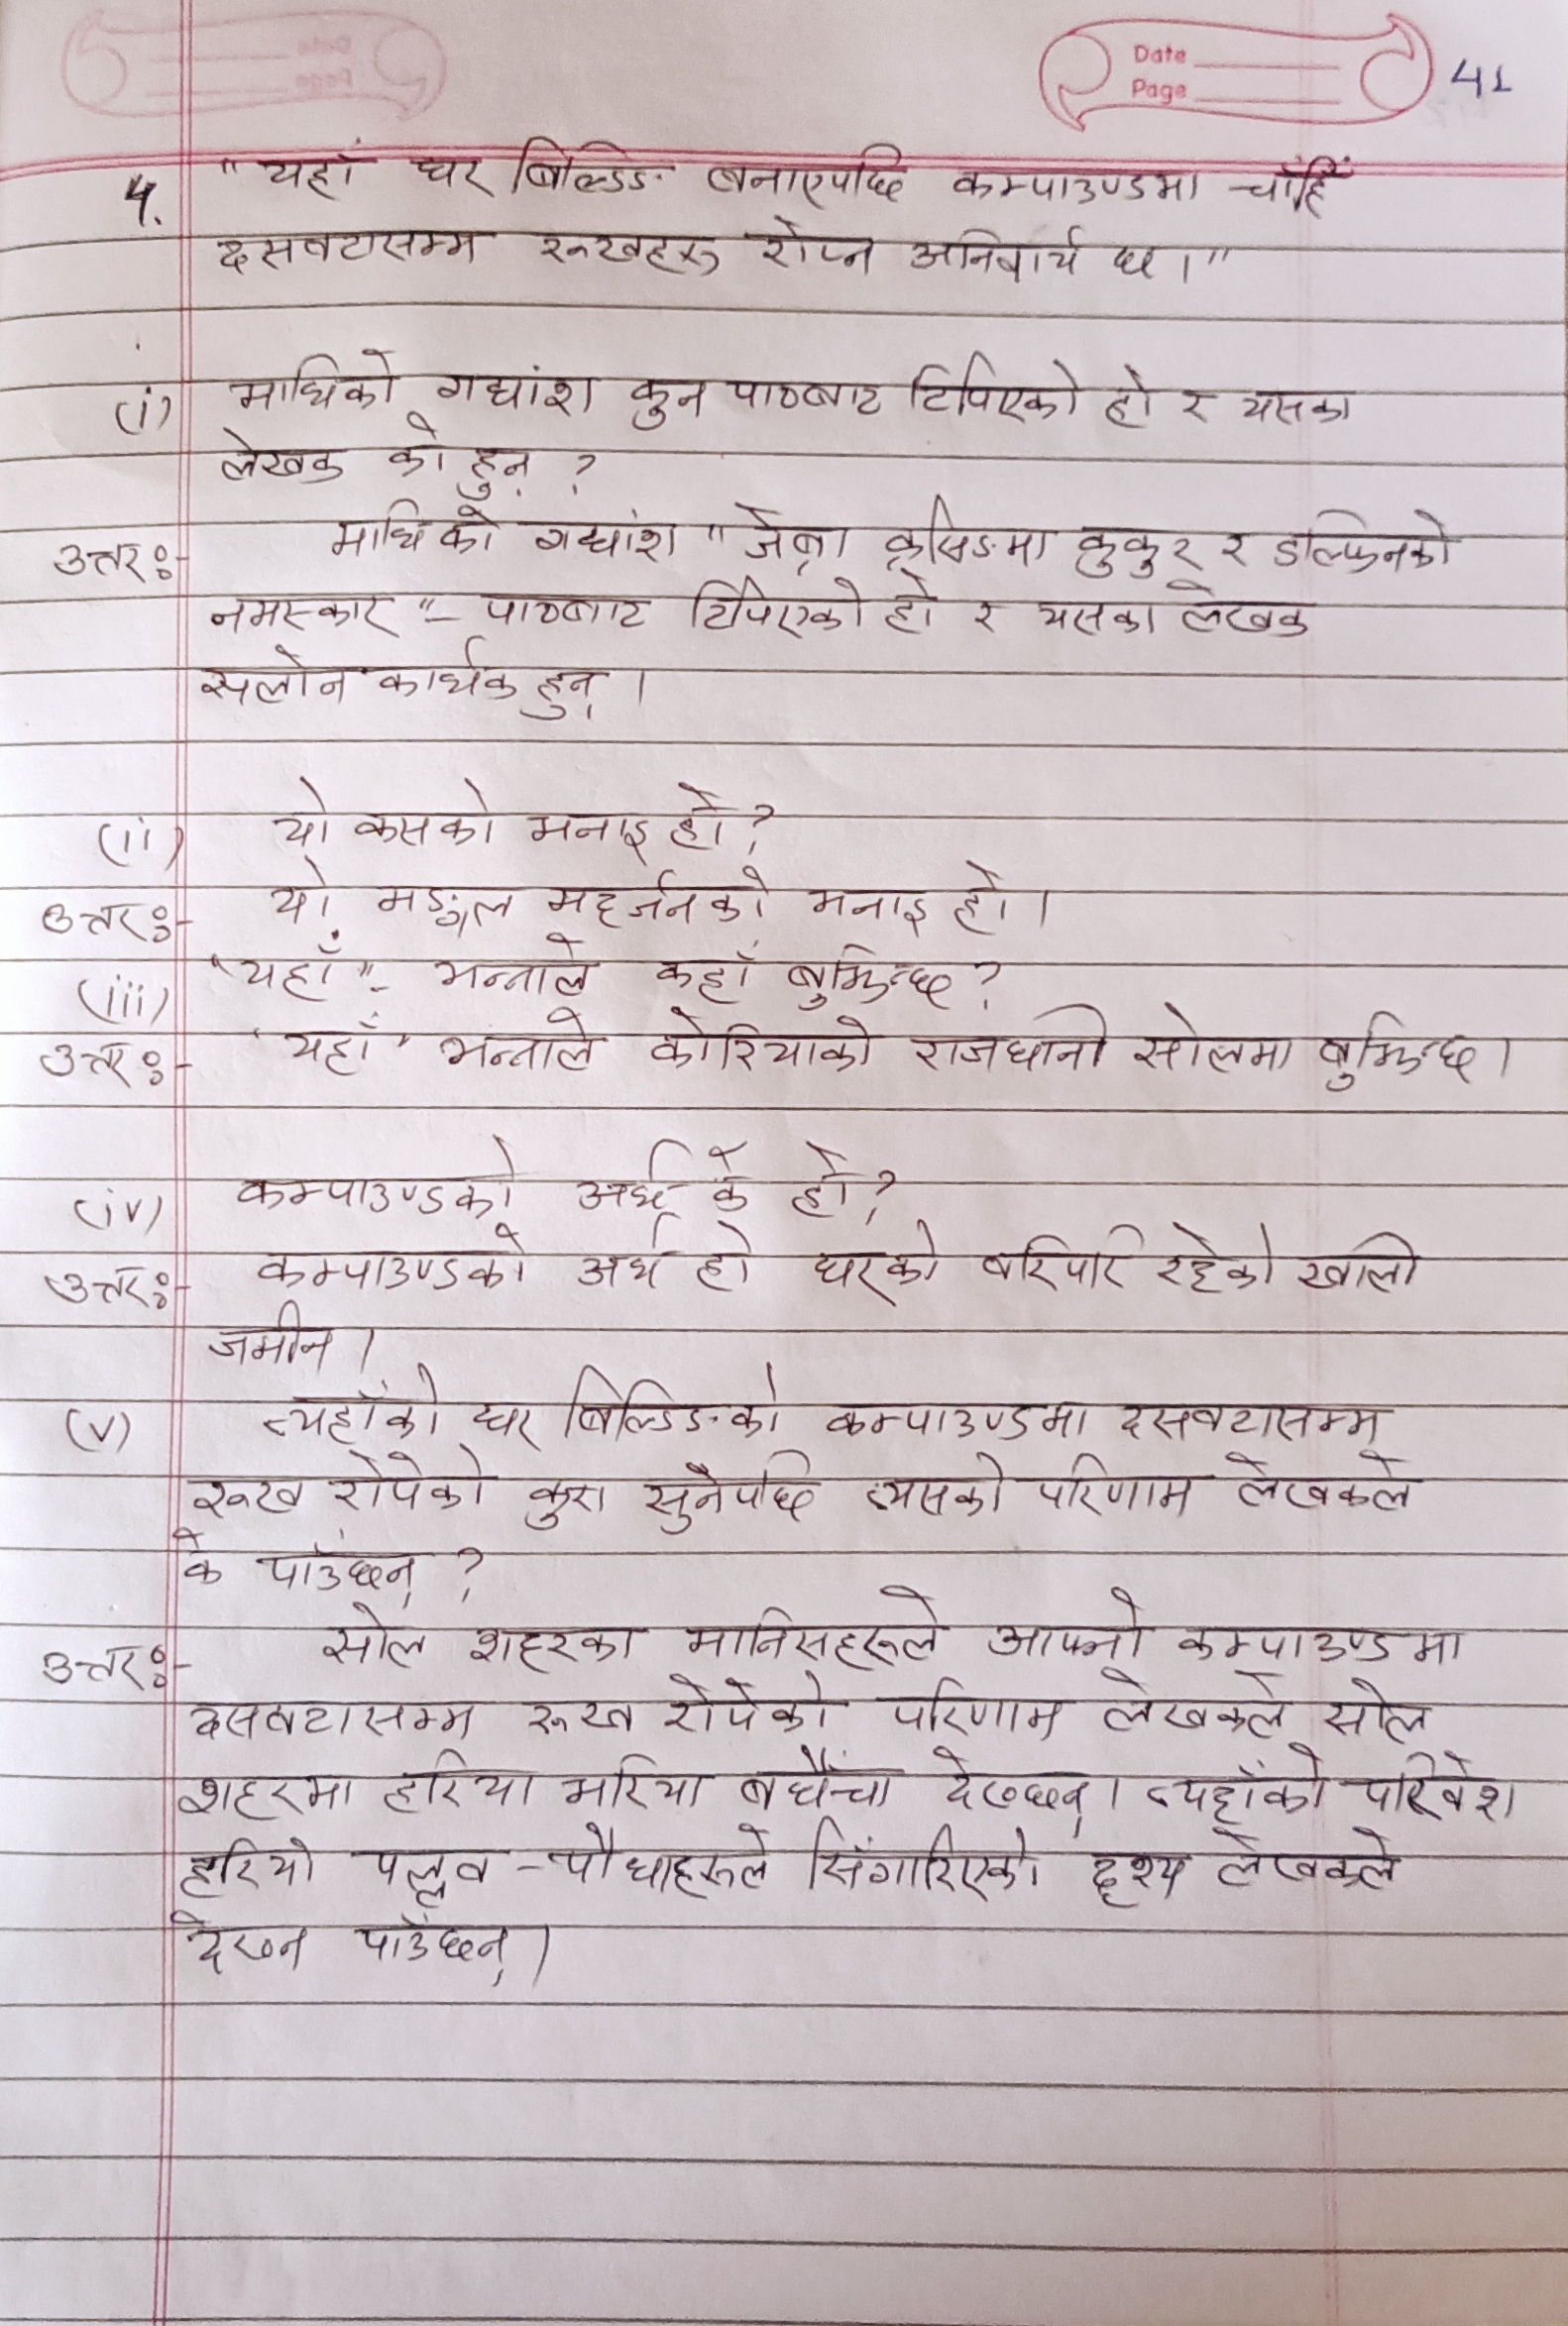 Date
Page
41
4. "यहाँ घर बिल्डिङ बनाएपछि कम्पाउण्डमा चाँहि
दसवटासम्म रूखहरू रोप्न अनिवार्य छ।"
(i) माथिको गद्यांश कुन पाठबाट टिपिएको हो र यसका
लेखक को हुन् ?
उत्तरः- माथिको गद्यांश "जेब्रा क्रसिङमा कुकुर र डल्फिनको
नमस्कार"- पाठबाट टिपिएको हो र यसका लेखक
सलोन कार्थक हुन्।
(ii) यो कसको भनाइ हो?
उत्तरः- यो मङ्गल महर्जनको भनाइ हो।
(iii) "यहाँ"- भन्नाले कहाँ बुझिन्छ?
उत्तरः- 'यहाँ' भन्नाले कोरियाको राजधानी सोलमा बुझिन्छ।
(iv) कम्पाउण्डको अर्थ के हो?
उत्तरः- कम्पाउण्डको अर्थ हो घरको वरिपरि रहेको खाली
जमीन।
(v) त्यहाँको घर बिल्डिङको कम्पाउण्डमा दसवटासम्म
रूख रोपेको कुरा सुनेपछि त्यसको परिणाम लेखकले
के पाउँछन् ?
उत्तरः- सोल शहरका मानिसहरूले आफ्नो कम्पाउण्डमा
दसवटासम्म रूख रोपेको परिणाम लेखकले सोल
शहरमा हरिया भरिया बघैँचा देख्छन्। त्यहाँको परिवेश
हरियो पल्लव-पौधाहरूले सिंगारिएको दृश्य लेखकले
देख्न पाउँछन्।